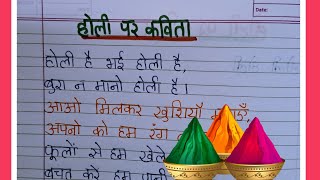 Date:
होली पर कविता
होली है भई होली है,
बुरा न मानो होली है।
आओ मिलकर खुशियाँ
अपनो को हम रंग
फूलों से हम खेले
बचत करे हम पानी